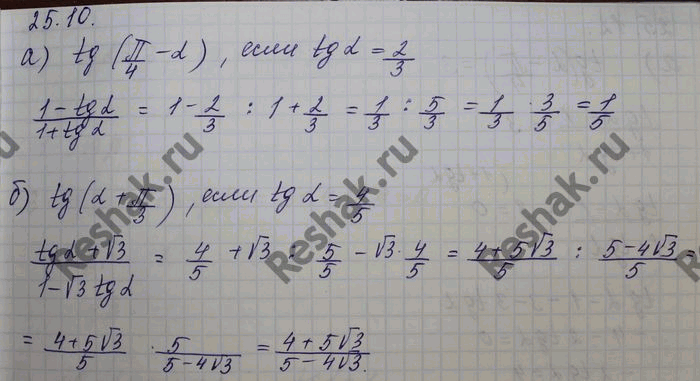 25.10.
а) tg(π/4 − α), если tg α = 2/3
(1 − tg α)/(1 + tg α) = 1 − 2/3 : 1 + 2/3 = 1/3 : 5/3 = 1/3 · 3/5 = 1/5
б) tg(α + π/3), если tg α = 4/5
(tg α + √3)/(1 − √3 tg α) = 4/5 + √3 : 5/5 − √3 · 4/5 = (4 + 5√3)/5 : (5 − 4√3)/5 =
= (4 + 5√3)/5 · 5/(5 − 4√3) = (4 + 5√3)/(5 − 4√3).
Reshak.ru
Reshak.ru
Reshak.ru